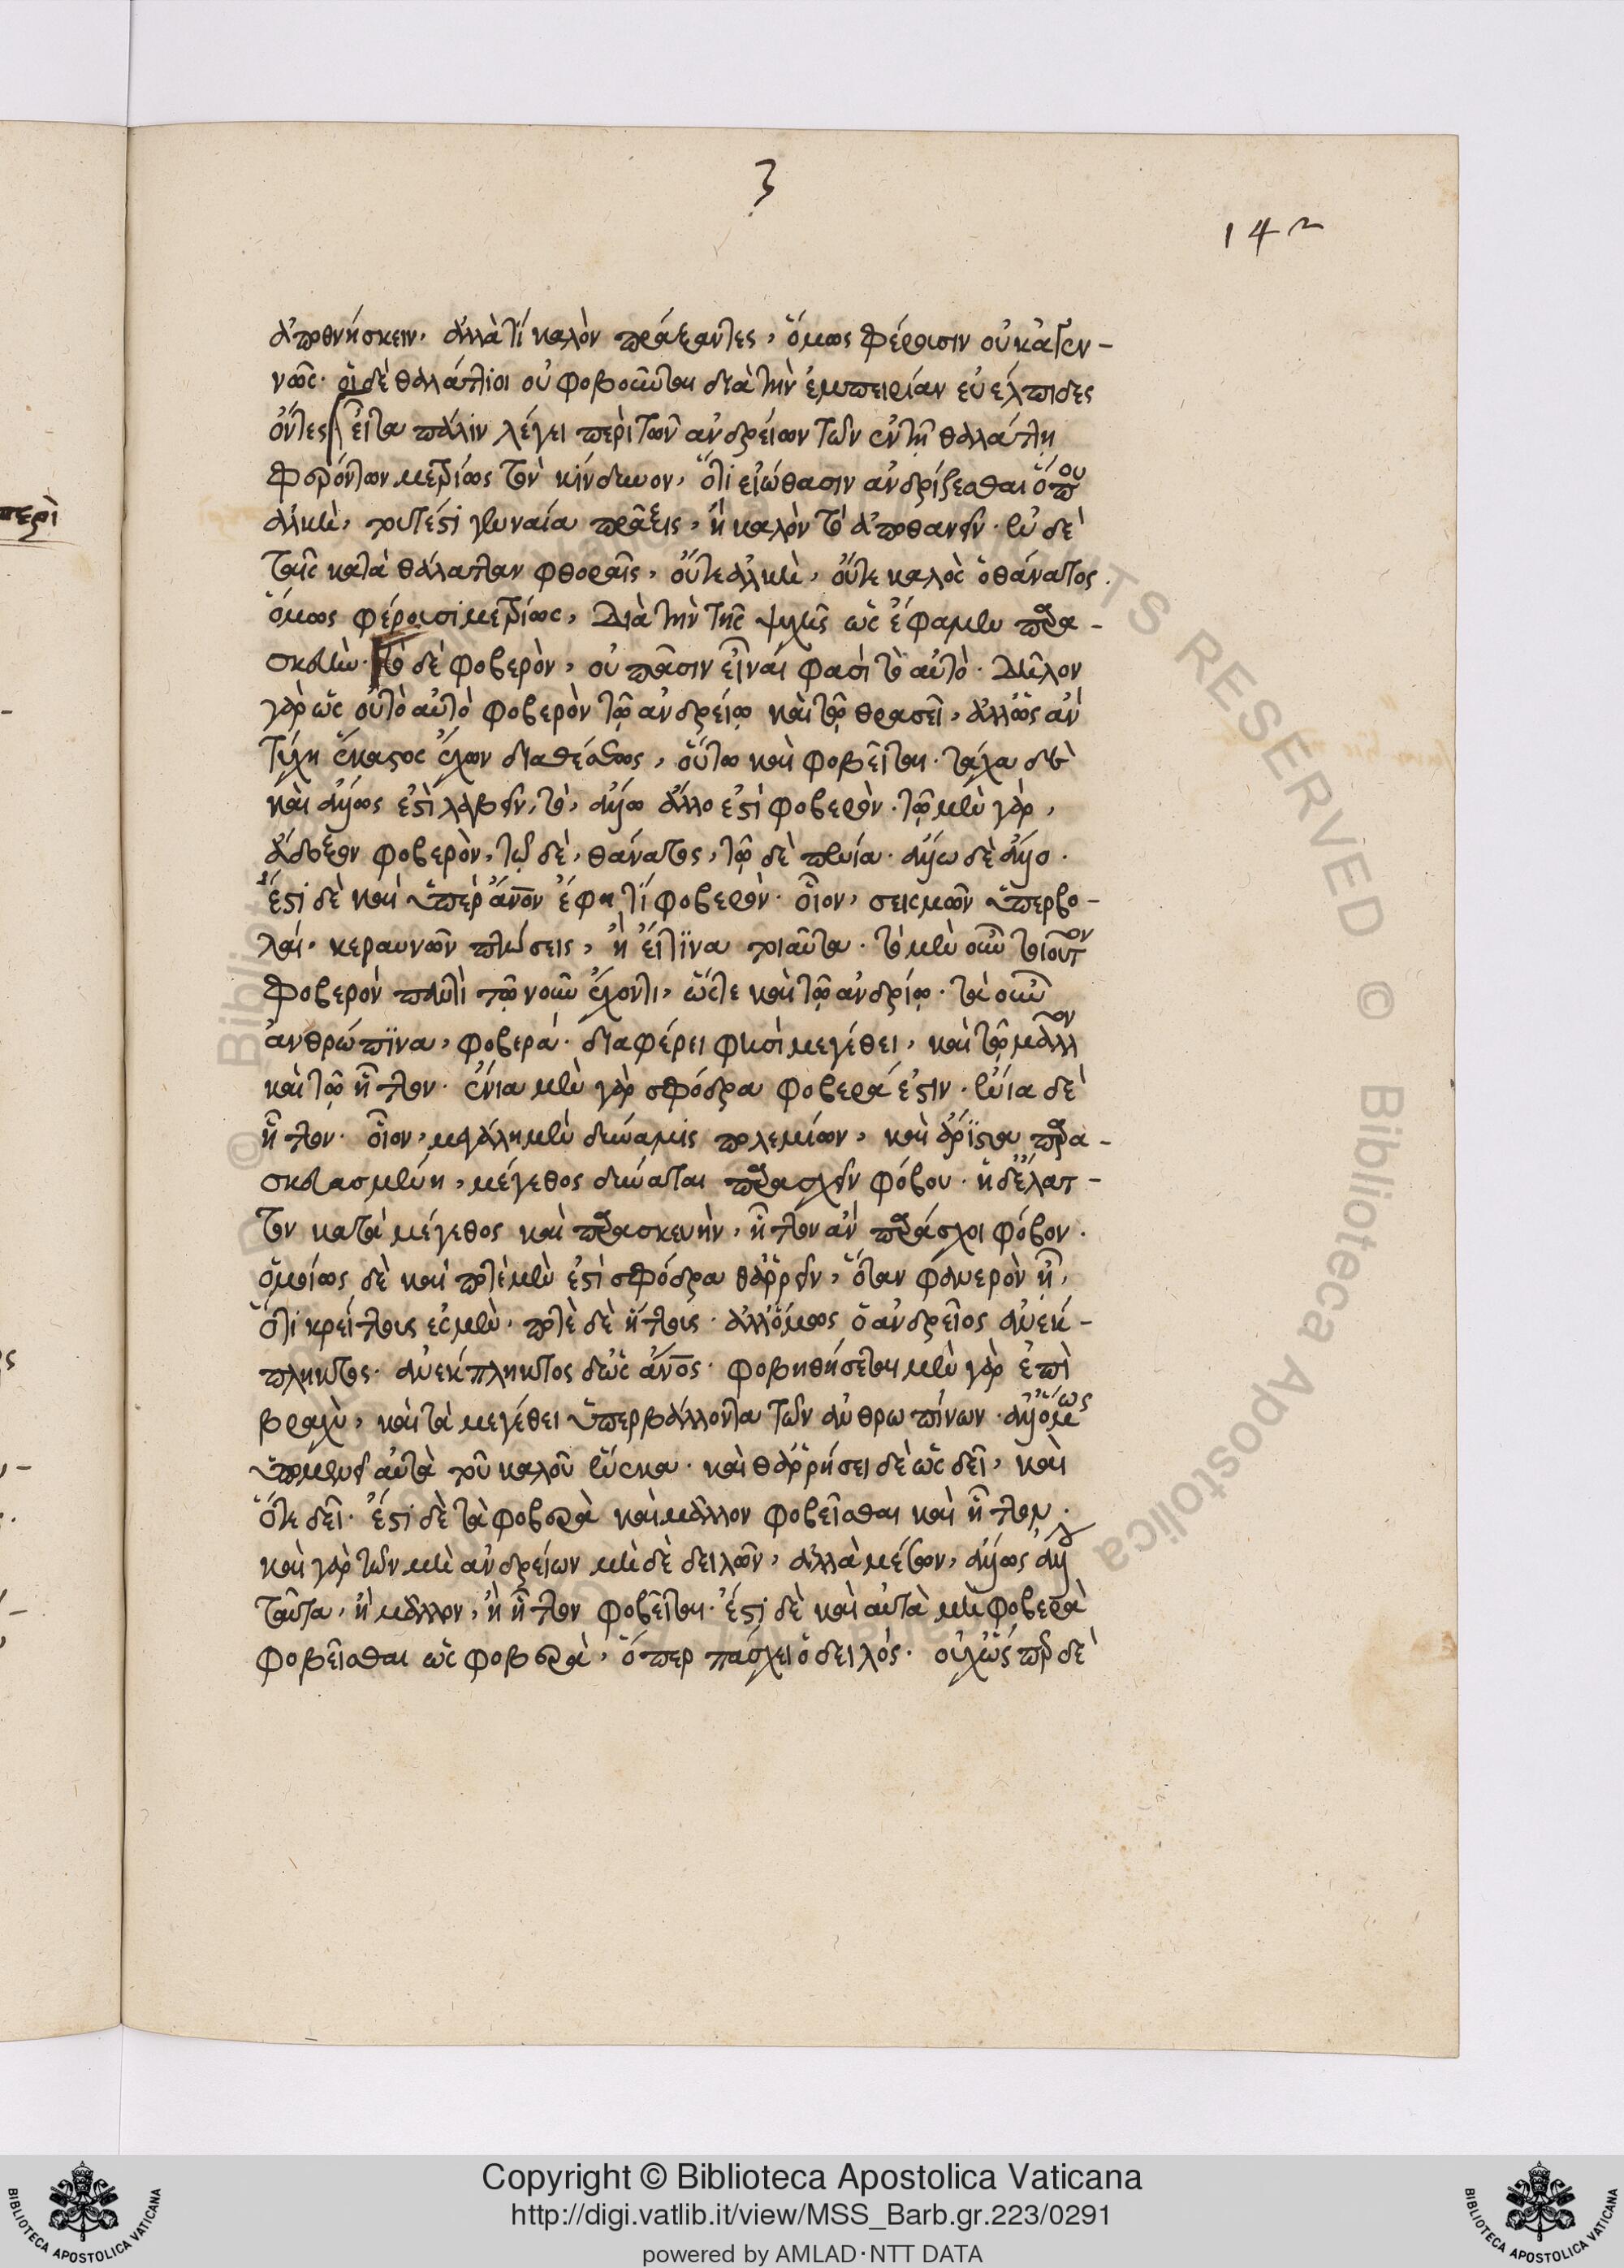 3
142
ἀποθνήσκειν, ἀλλὰ τί καλὸν πράξαντες, ὅμως φέρουσιν οὐκ ἀγεν-
νῶς· οἱ δὲ θαλάττιοι οὐ φοβοῦνται διὰ τὴν ἐμπειρίαν εὐέλπιδες
ὄντες εἶτα πάλιν λέγει περὶ τῶν ἀνδρείων τῶν ἐν τῇ θαλάττῃ
φερόντων μετρίως τὸν κίνδυνον, ὅτι εἰώθασιν ἀνδρίζεσθαι ὅπου
ἀλκὴ, τουτέστι γενναία πρᾶξις, ἢ καλὸν τὸ ἀποθανεῖν· ἐν δὲ
ταῖς κατὰ θάλατταν φθοραῖς, οὔτε ἀλκὴ, οὔτε καλὸς ὁ θάνατος.
ὅμως φέρουσι μετρίως, διὰ τὴν τῆς ψυχῆς ὡς ἔφαμεν παρα-
σκευὴν· τὸ δὲ φοβερὸν, οὐ πᾶσιν εἶναί φασὶ τὸ αὐτὸ· δῆλον
γὰρ ὡς οὐ τὸ αὐτὸ φοβερὸν τῷ ἀνδρείῳ καὶ τῷ θρασεῖ, ἀλλ' ὡς ἂν
τύχῃ ἕκαστος ἔχων διαθέσεως, οὕτω καὶ φοβεῖται· τάχα δὲ
καὶ ἄλλως ἐστὶ λαβεῖν, τὸ, ἄλλῳ ἄλλο ἐστὶ φοβερὸν· τῷ μὲν γὰρ,
ἄδοξον φοβερὸν, τῷ δὲ, θάνατος, τῷ δὲ πενία· ἄλλῳ δὲ ἄλλο.
ἔστι δὲ καὶ ὑπὲρ ἄνον ἔφη τί φοβερὸν· οἷον, σεισμῶν ὑπερβο-
λαί· κεραυνῶν πτώσεις, ἢ εἴ τινα τοιαῦτα· τὸ μὲν οὖν τοιοῦτον
φοβερὸν παντὶ τῷ νοῦν ἔχοντι, ὥστε καὶ τῷ ἀνδρίῳ· τὰ οὖν
ἀνθρώπινα, φοβερά· διαφέρει φησὶ μεγέθει, καὶ τῷ μᾶλλον
καὶ τῷ ἧττον· ἔνια μὲν γὰρ σφόδρα φοβερά ἐστιν· ἔνια δὲ
ἧττον· οἷον, μεγάλη μὲν δύναμις πολεμίων, καὶ ἄριστα παρα-
σκευασμένη, μέγεθος δύναται παρασχεῖν φόβου· ἡ δ' ἔλατ-
τον κατὰ μέγεθος καὶ παρασκευὴν, ἧττον ἂν παράσχοι φόβον.
ὁμοίως δὲ καὶ ποτὲ μὲν ἐστὶ σφόδρα θαῤῥεῖν, ὅταν φανερὸν ᾖ,
ὅτι κρείττους ἐσμὲν· ποτὲ δὲ ἥττους· ἀλλ' ὅμως ὁ ἀνδρεῖος ἀνεκ-
πληκτος· ἀνέκπληκτος δ' ὡς ἄνος· φοβηθήσεται μὲν γὰρ ἐπὶ
βραχὺ, καὶ τὰ μεγέθει ὑπερβάλλοντα τῶν ἀνθρωπίνων· ἀλλ' ὅμως
ὑπομενεῖ αὐτὰ τοῦ καλοῦ ἕνεκα· καὶ θαῤῥήσει δὲ ὡς δεῖ, καὶ
ὅτε δεῖ· ἔστι δὲ τὰ φοβερὰ καὶ μᾶλλον φοβεῖσθαι καὶ ἧττον.
καὶ γὰρ τῶν μὴ ἀνδρείων μὴ δὲ δειλῶν, ἀλλὰ μέσων, ἄλλως ἄλλος
ταῦτα, ἢ μᾶλλον, ἢ ἧττον φοβεῖται· ἔστι δὲ καὶ αὐτὰ μὴ φοβερὰ
φοβεῖσθαι ὡς φοβερὰ, ὅπερ πάσχει ὁ δειλός· οὐχ ὥσπερ δὲ
περὶ
Copyright © Biblioteca Apostolica Vaticana
http://digi.vatlib.it/view/MSS_Barb.gr.223/0291
powered by AMLAD·NTT DATA